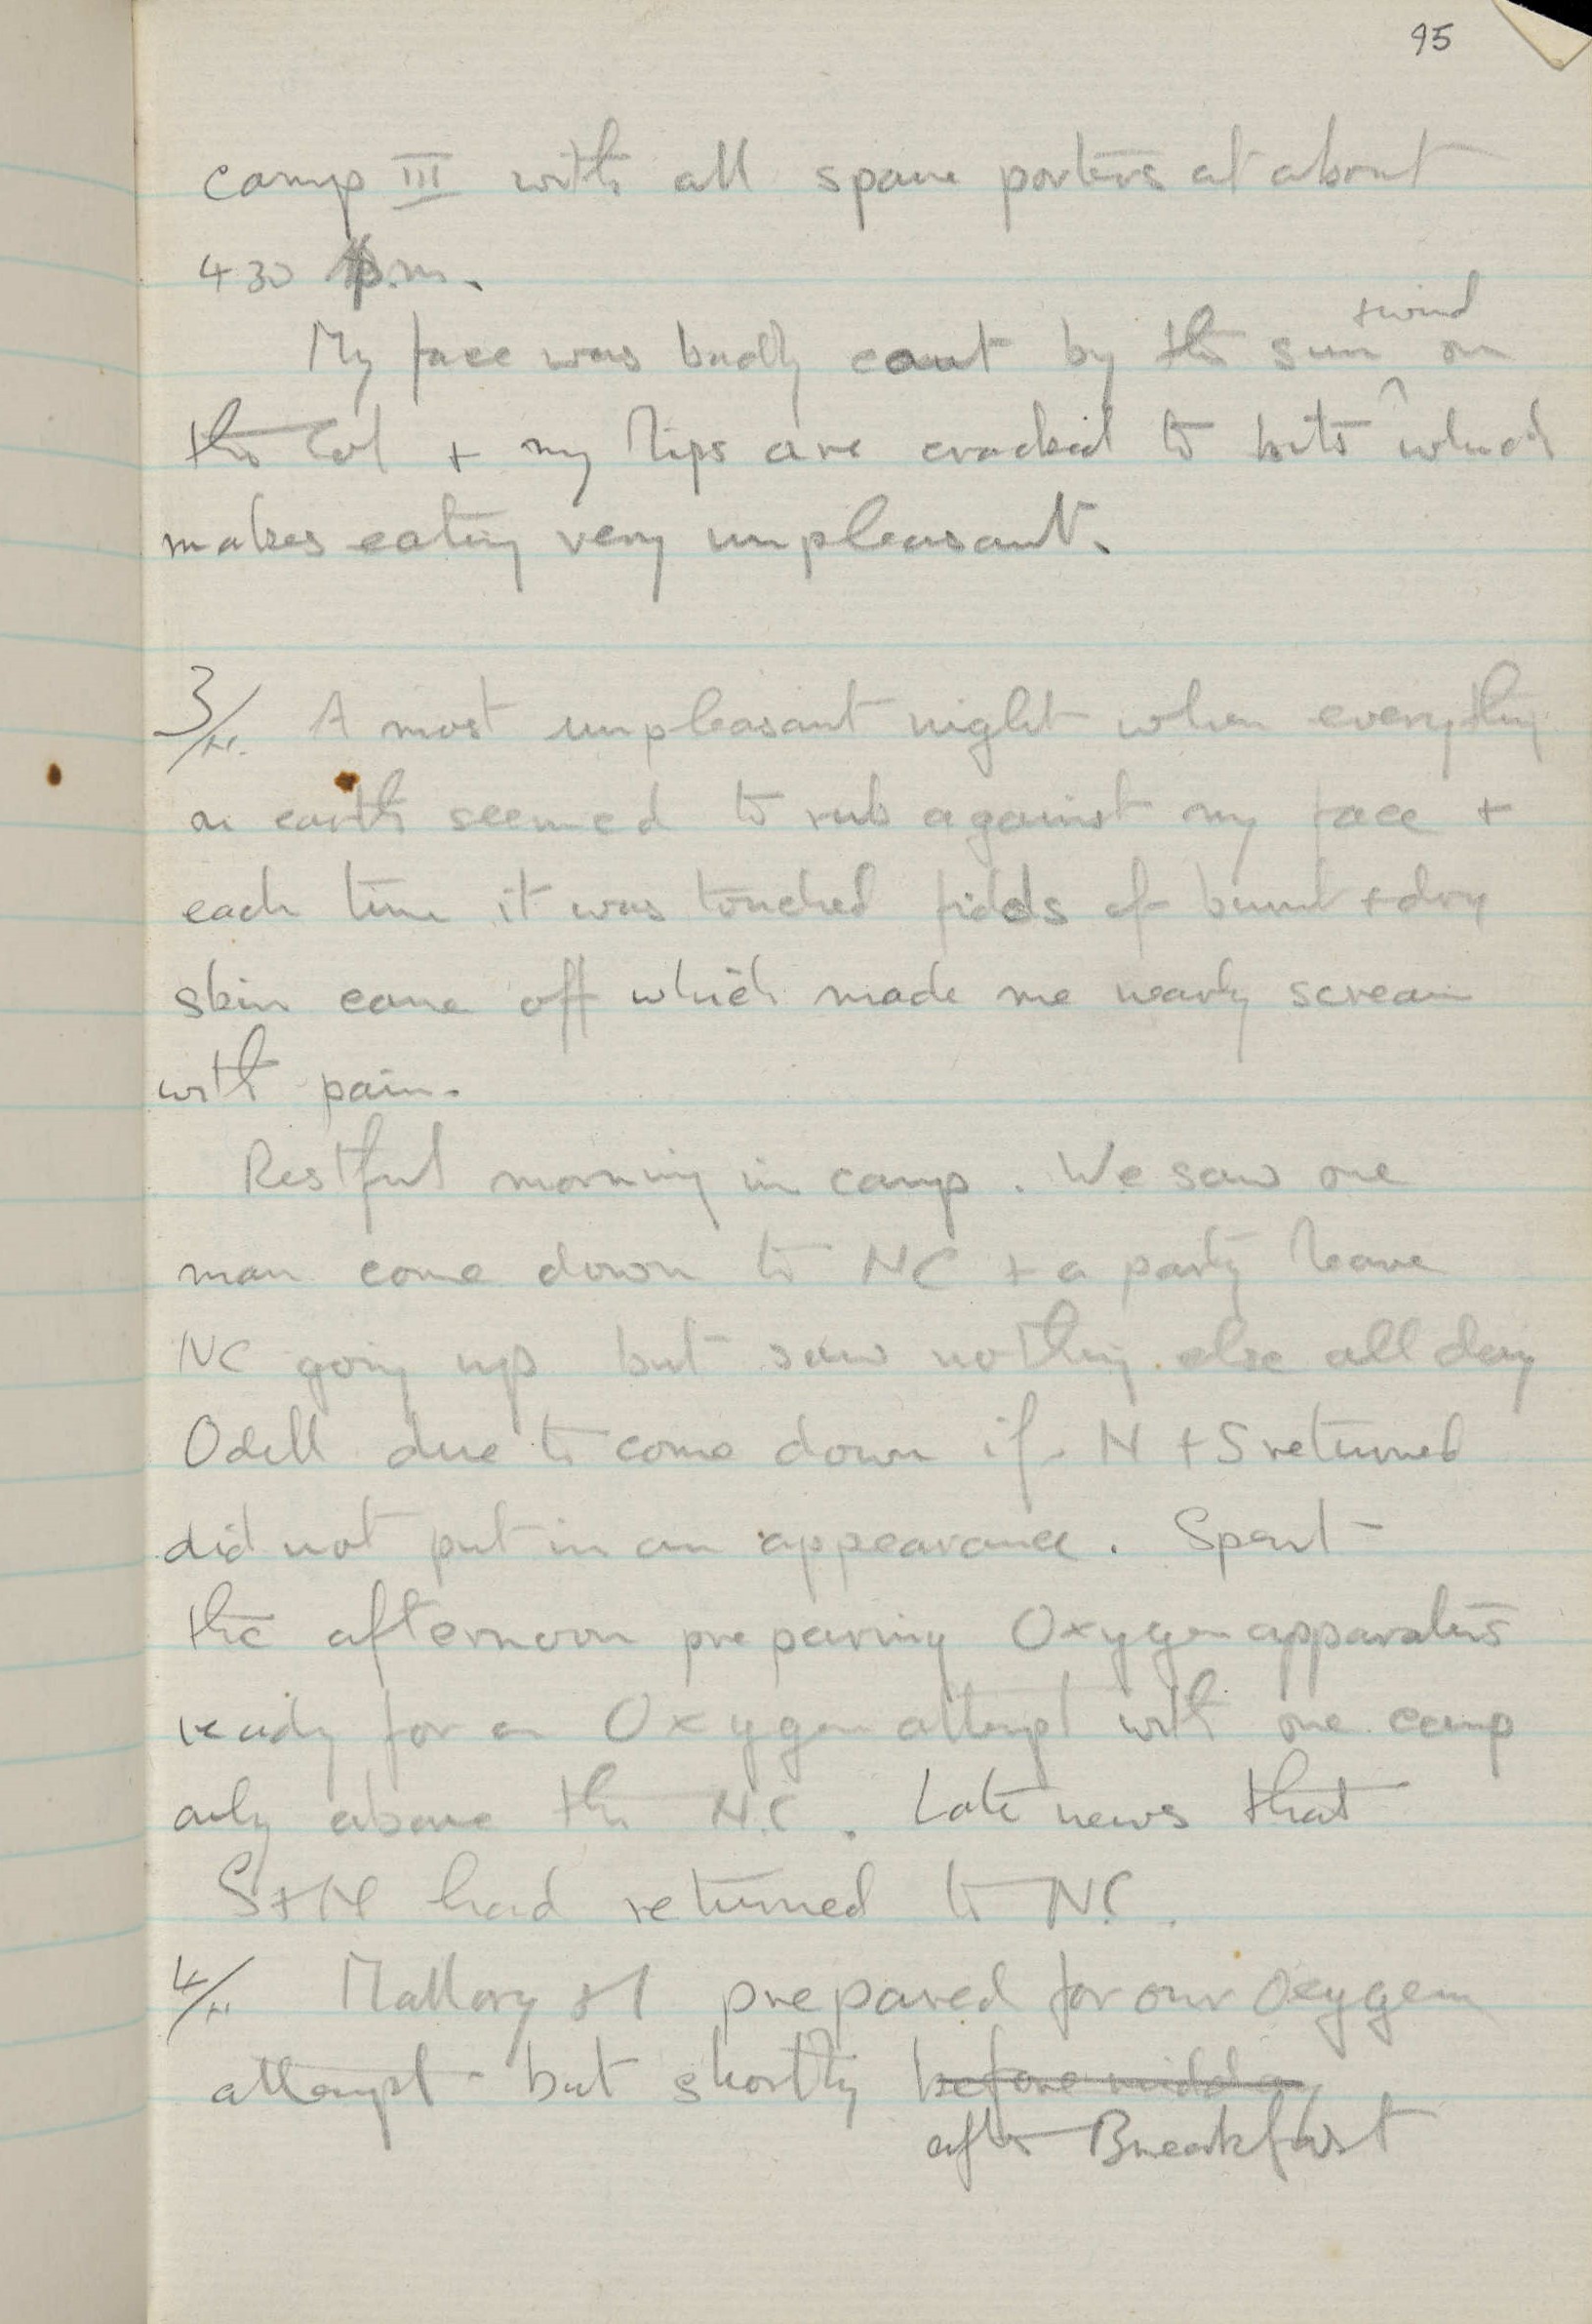 95
camp III with all spare porters at about
430 p.m.
My face was badly caut by the sun + wind on
the Col + my lips are cracked to bits which
makes eating very unpleasant.
3/VI. A most unpleasant night when everything
on earth seemed to rub against my face +
each time it was touched of burnt + dry
skin came off which made me nearly scream
with pain.
Restful morning in camp. We saw one
man come down to NC + a party leave
NC going up but saw nothing else all day
Odell due to come down if N + S returned
did not put in an appearance. Spent
the afternoon preparing Oxygen apparatus
ready for an Oxygen attempt with one camp
only above the N.C. Late news that
S + N had returned to N.C.
4/VI Mallory & I prepared for our Oxygen
attempt - but shortly before midday
after Breakfast